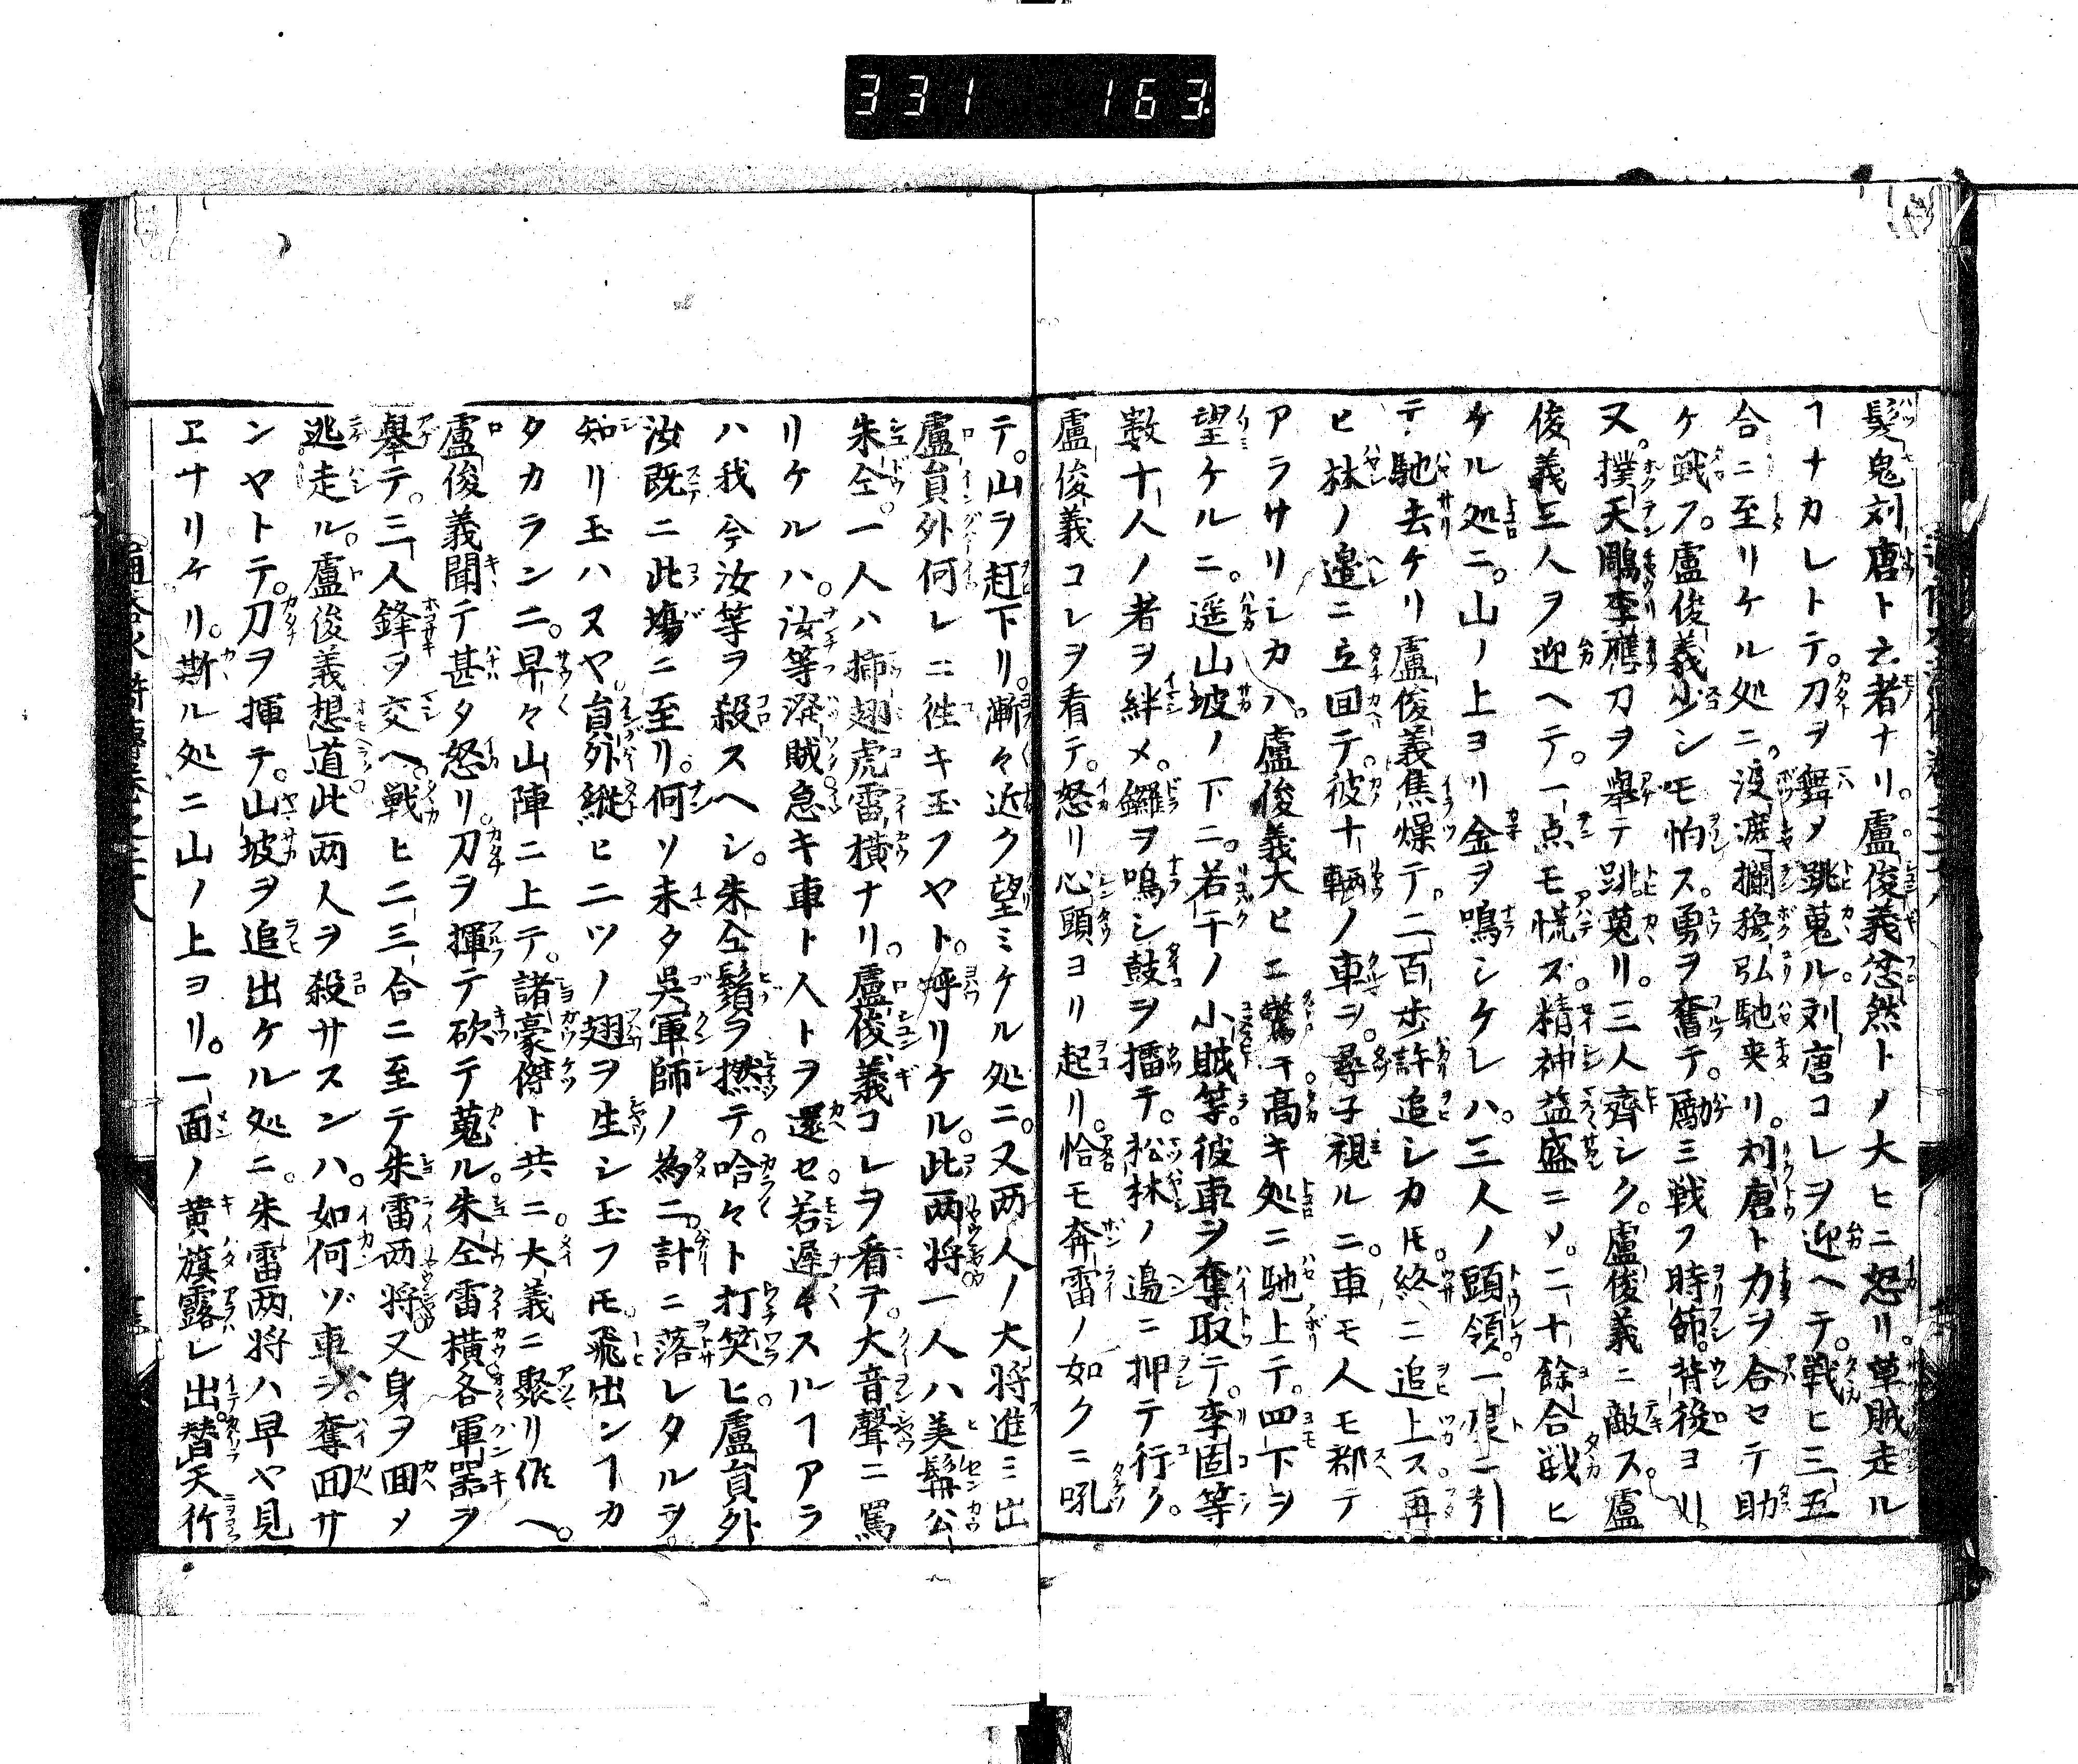 331 163.
髪鬼刘唐ト云者ナリ。盧俊義忿然トメ大ヒニ怒リ。草賊走ル
ヿナカレトテ。刀ヲ舞メ跳蒐ル。刘唐コレヲ迎ヘテ。戦ヒ三五
合ニ至リケル処ニ。没遮攔穆弘馳来リ。刘唐ト力ヲ合セテ助
ケ戦フ。盧俊義少シモ怕ス。勇ヲ奮テ。勵ミ戦フ時節。背後ヨリ
又。撲天鵰李應刀ヲ舉テ跳蒐リ。三人齊シク。盧俊義ニ敵ス。盧
俊義三人ヲ迎ヘテ。一点モ慌ズ。精神益盛ニメ。二十餘合戦ヒ
ケル処ニ。山ノ上ヨリ金ヲ鳴シケレハ。三人ノ頭領。一ニ引
テ馳去ケリ盧俊義焦燥テ。二百歩許追シカ𪜈。終ニ追上ス。再
ヒ林ノ邉ニ立回テ。彼十輌ノ車ヲ。尋子視ルニ。車モ人モ都テ
アラサリシカハ。盧俊義大ヒニ驚キ。高キ処ニ馳上テ。四下ヲ
望ケルニ。遥山坡ノ下ニ。若干ノ小賊等。彼車ヲ奪取テ。李固等
数十人ノ者ヲ絆メ。鑼ヲ鳴シ鼓ヲ擂テ。松林ノ邉ニ押テ行ク。
盧俊義コレヲ看テ。怒リ心頭ヨリ起リ。恰モ奔雷ノ如クニ吼
テ。山ヲ赶下リ。漸々近ク望ミケル処ニ。又两人ノ大将進ミ出
盧員外何レニ徃キ玉フヤト。呼リケル。此两将一人ハ美髯公
朱仝。一人ハ挿翅虎雷横ナリ。盧俊義コレヲ看テ。大音聲ニ罵
リケルハ。汝等溌賊急キ車ト人トヲ還セ。若遅々スルヿアラ
ハ我今汝等ヲ殺スヘシ。朱仝鬚ヲ撚テ。哈々ト打笑ヒ。盧員外
汝既ニ此塲ニ至リ。何ソ未タ吳軍師ノ為ニ。計ニ落レタルヲ。
知リ玉ハヌヤ。員外縦ヒ二ツノ翅ヲ生シ玉フ𪜈。飛出ンヿカ
タカランニ。早々山陣ニ上テ。諸豪傑ト共ニ。大義ニ聚リ候ヘ。
盧俊義聞テ甚タ怒リ。刀ヲ揮テ砍テ蒐ル。朱仝雷横各軍器ヲ
舉テ。三人鋒ヲ交ヘ。戦ヒ二三合ニ至テ朱雷两将又身ヲ回メ
逃走ル。盧俊義想道此两人ヲ殺サスンハ。如何ゾ車ヲ。奪囬サ
ンヤトテ。刀ヲ揮テ。山坡ヲ追出ケル処ニ。朱雷两将ハ早ヤ見
ヱナリケリ。斯ル処ニ山ノ上ヨリ。一面ノ黄旗露レ出替天行